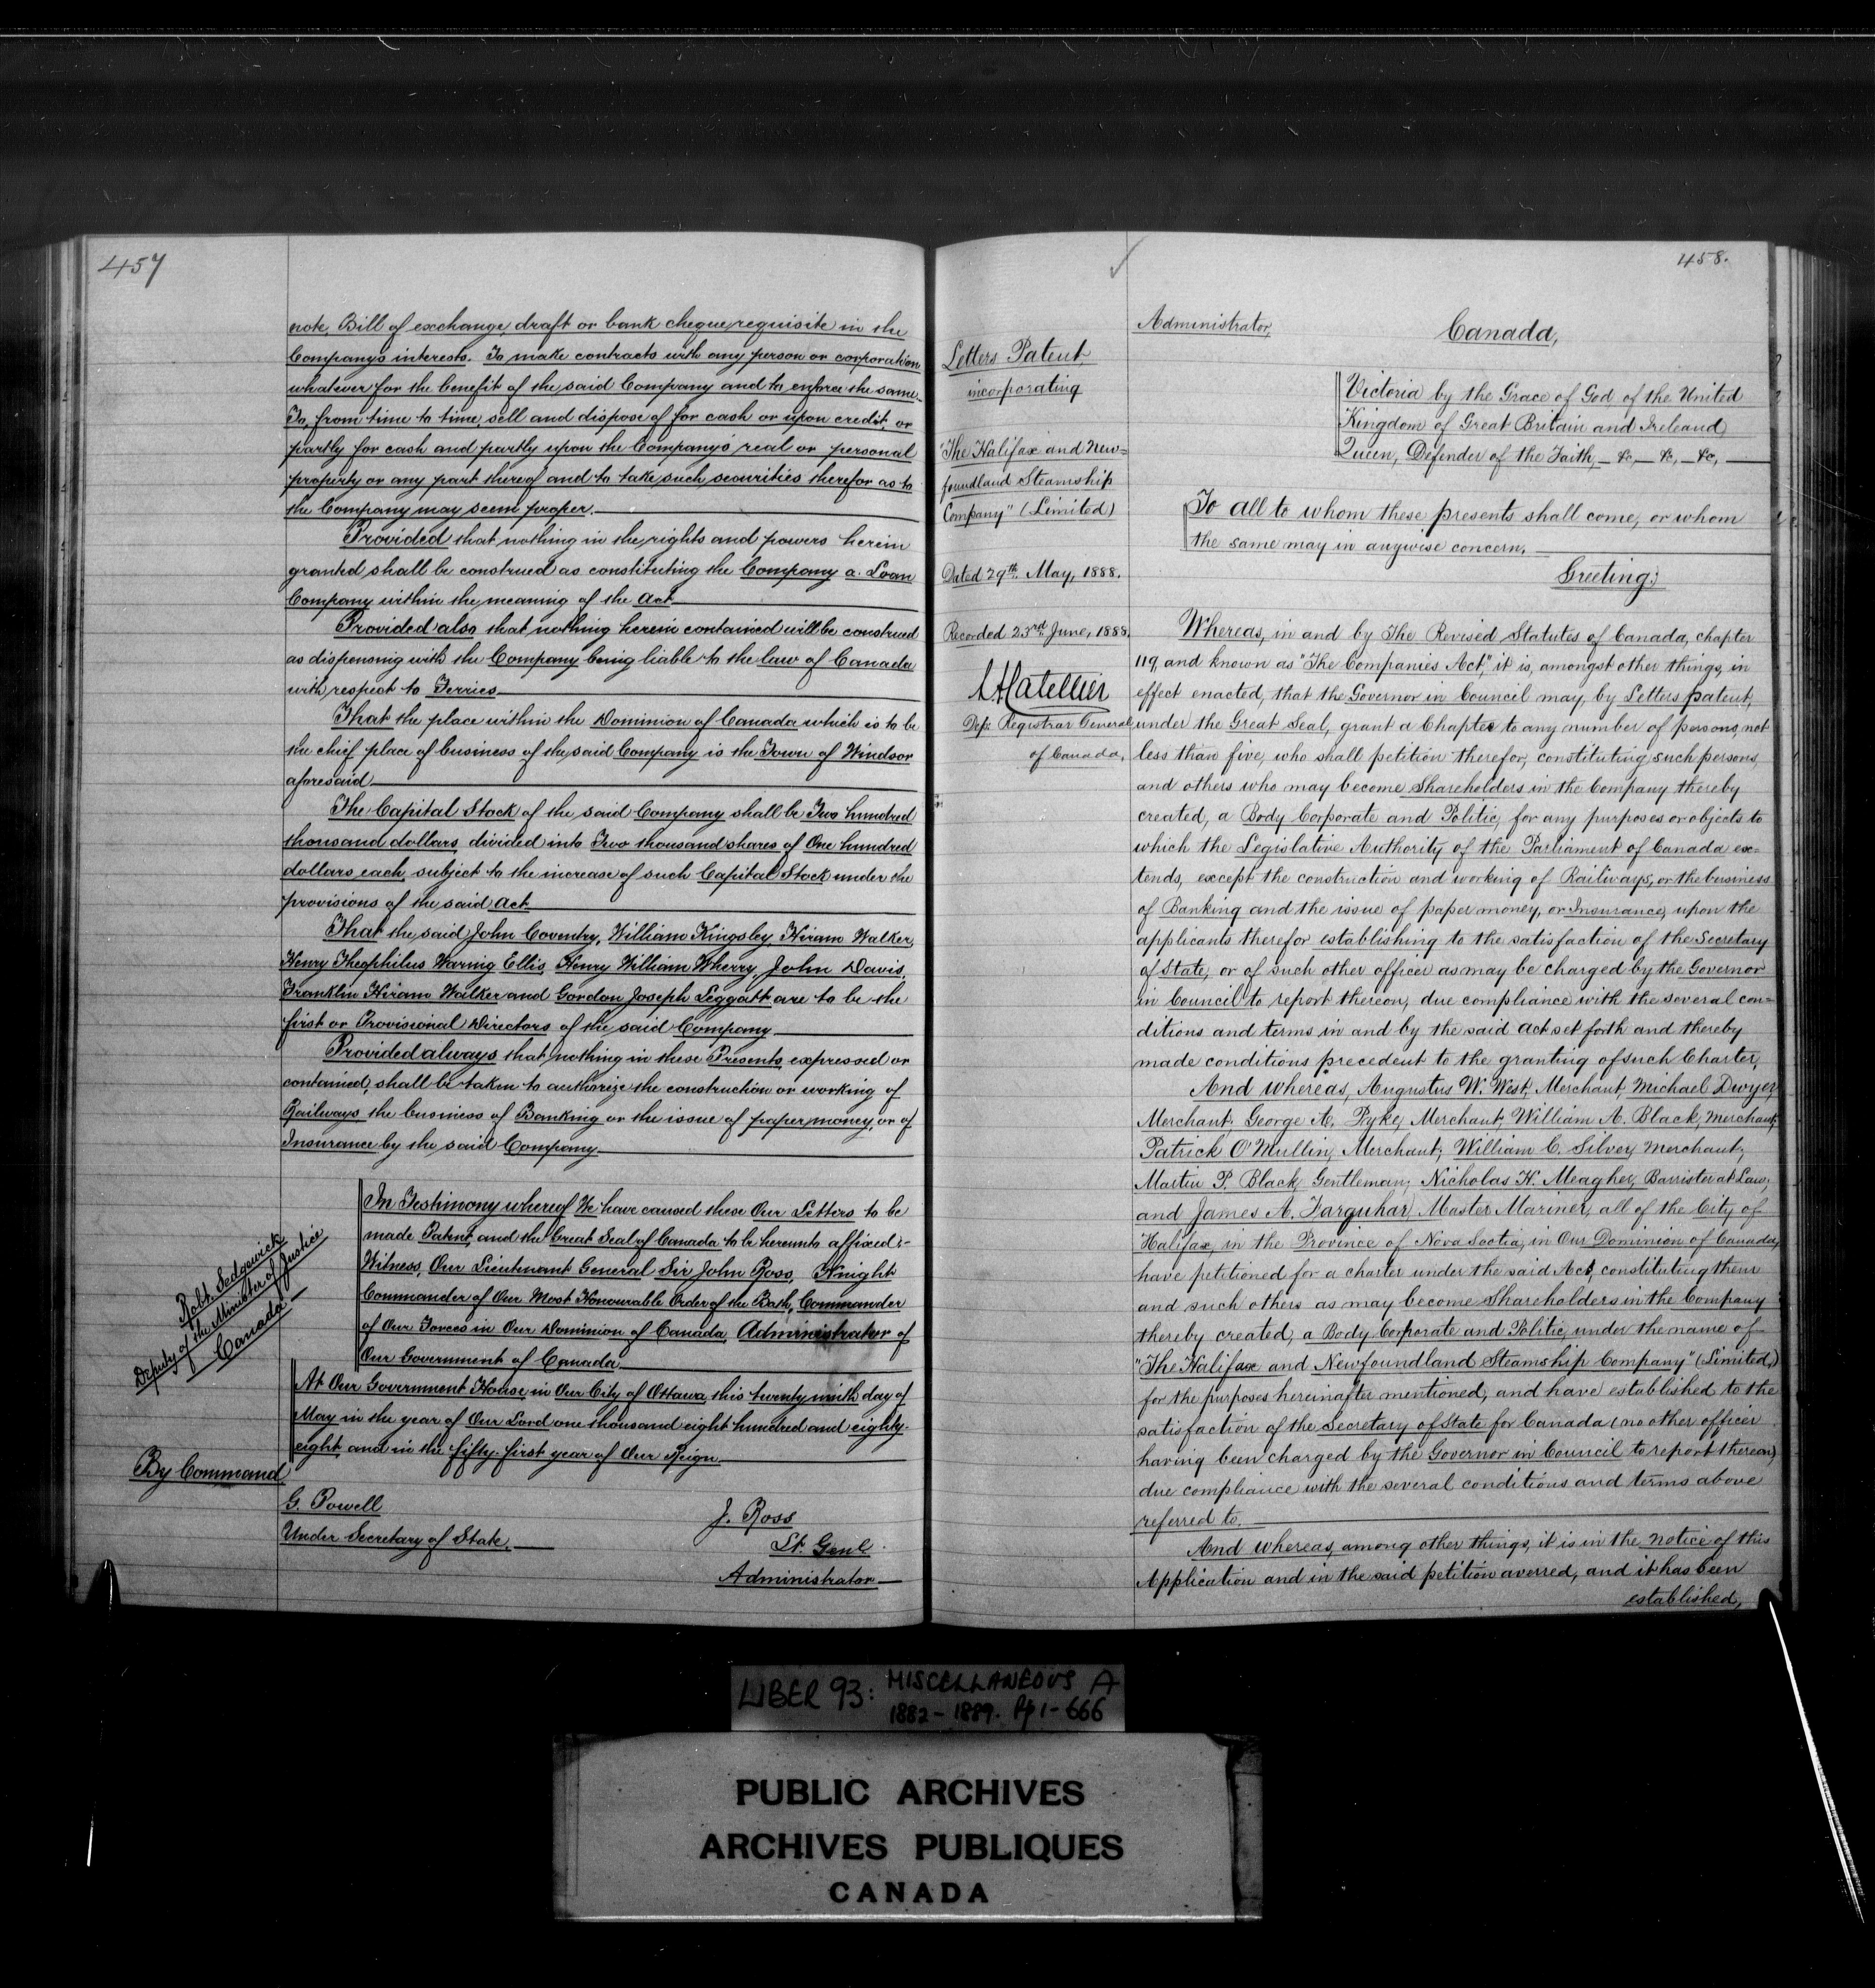 457
note, Bill of exchange, draft or bank cheque requisite in the
Company's interests. To make contracts with any person or corporation
whatever for the benefit of the said Company and to enforce the same.
To, from time to time, sell and dispose of for cash or upon credit, or
partly for cash and partly upon the Company's real or personal
property or any part thereof and to take such securities therefor as to
the Company may seem proper.
Provided that nothing in the rights and powers herein
granted shall be construed as constituting the Company a Loan
Company within the meaning of the Act
Provided also that nothing herein contained will be construed
as dispensing with the Company being liable to the law of Canada
with respect to Ferries
That the place within the Dominion of Canada which is to be
the chief place of business of the said Company is the Town of Windsor
aforesaid
The Capital Stock of the said Company shall be Two hundred
thousand dollars, divided into Two thousand shares of One hundred
dollars each, subject to the increase of such Capital Stock under the
provisions of the said Act
That the said John Coventry, William Kingsley Hiram Walker,
Henry Theophilus Waring Ellis, Henry William Wherry, John Davis,
Franklin Hiram Walker and Gordon Joseph Leggatt are to be the
first or Provisional Directors of the said Company
Provided always that nothing in these Presents expressed or
contained, shall be taken to authorize the construction or working of
Railways the business of Banking or the issue of paper money, or of
Insurance by the said Company
In Testimony whereof We have caused these Our Letters to be
made Patent, and the Great Seal of Canada to be hereunto affixed:-
Witness, Our Lieutenant General Sir John Ross, Knight
Commander of Our Most Honourable Order of the Bath, Commander
of Our Forces in Our Dominion of Canada, Administrator of
Our Government of Canada
At Our Government House in Our City of Ottawa, this twenty ninth day of
May in the year of Our Lord one thousand eight hundred and eighty-
eight and in the fifty-first year of Our Reign
Robt. Sedgewick
Deputy of the Minister of Justice
Canada
By Command
G. Powell
Under Secretary of State.
J. Ross
Lt. Genl.
Administrator
458.
Letters Patent
incorporating
"The Halifax and New=
foundland Steamship
Company" (Limited)
Dated 29th. May, 1888.
Recorded 23rd. June, 1888.
L.A. Catellier
Dep. Registrar General
of Canada,
Administrator,
Canada,
Victoria by the Grace of God, of the United
Kingdom of Great Britain and Ireland
Queen, Defender of the Faith, &c, &c, &c,
To all to whom these presents shall come, or whom
the same may in anywise concern,
Greeting:
Whereas, in and by The Revised Statutes of Canada, chapter
119, and known as "The Companies Act," it is, amongst other things, in
effect enacted, that the Governor in Council may, by Letters patent,
under the Great Seal, grant a Chapter to any number of persons, not
less than five, who shall petition therefor, constituting such persons,
and others who may become Shareholders in the Company thereby
created, a Body Corporate and Politic, for any purposes or objects to
which the Legislative Authority of the Parliament of Canada ex=
tends, except the construction and working of Railways, or the business
of Banking and the issue of paper money, or Insurance, upon the
applicants therefor establishing to the satisfaction of the Secretary
of State, or of such other officer as may be charged by the Governor
in Council to report thereon, due compliance with the several con=
ditions and terms in and by the said Act set forth and thereby
made conditions precedent to the granting of such Charter,
And whereas, Augustus W. West, Merchant, Michael Dwyer,
Merchant, George A. Pyke, Merchant, William A. Black, Merchant,
Patrick O'Mullin, Merchant; William C. Silver, Merchant;
Martin P. Black, Gentleman; Nicholas H. Meagher, Barrister at Law;
and James A. Farquhar, Master Mariner, all of the City of
Halifax, in the Province of Nova Scotia, in Our Dominion of Canada,
have petitioned for a charter under the said Act, constituting them
and such others as may become Shareholders in the Company
thereby created, a Body Corporate and Politic, under the name of
"The Halifax and Newfoundland Steamship Company" (Limited,)
for the purposes hereinafter mentioned, and have established to the
satisfaction of the Secretary of State for Canada (no other officer
having been charged by the Governor in Council to report thereon)
due compliance with the several conditions and terms above
referred to.
And whereas, among other things, it is in the notice of this
Application and in the said petition averred, and it has been
established,
LIBER 93: MISCELLANEOUS A
1882-1889. Pp 1-666
PUBLIC ARCHIVES
ARCHIVES PUBLIQUES
CANADA